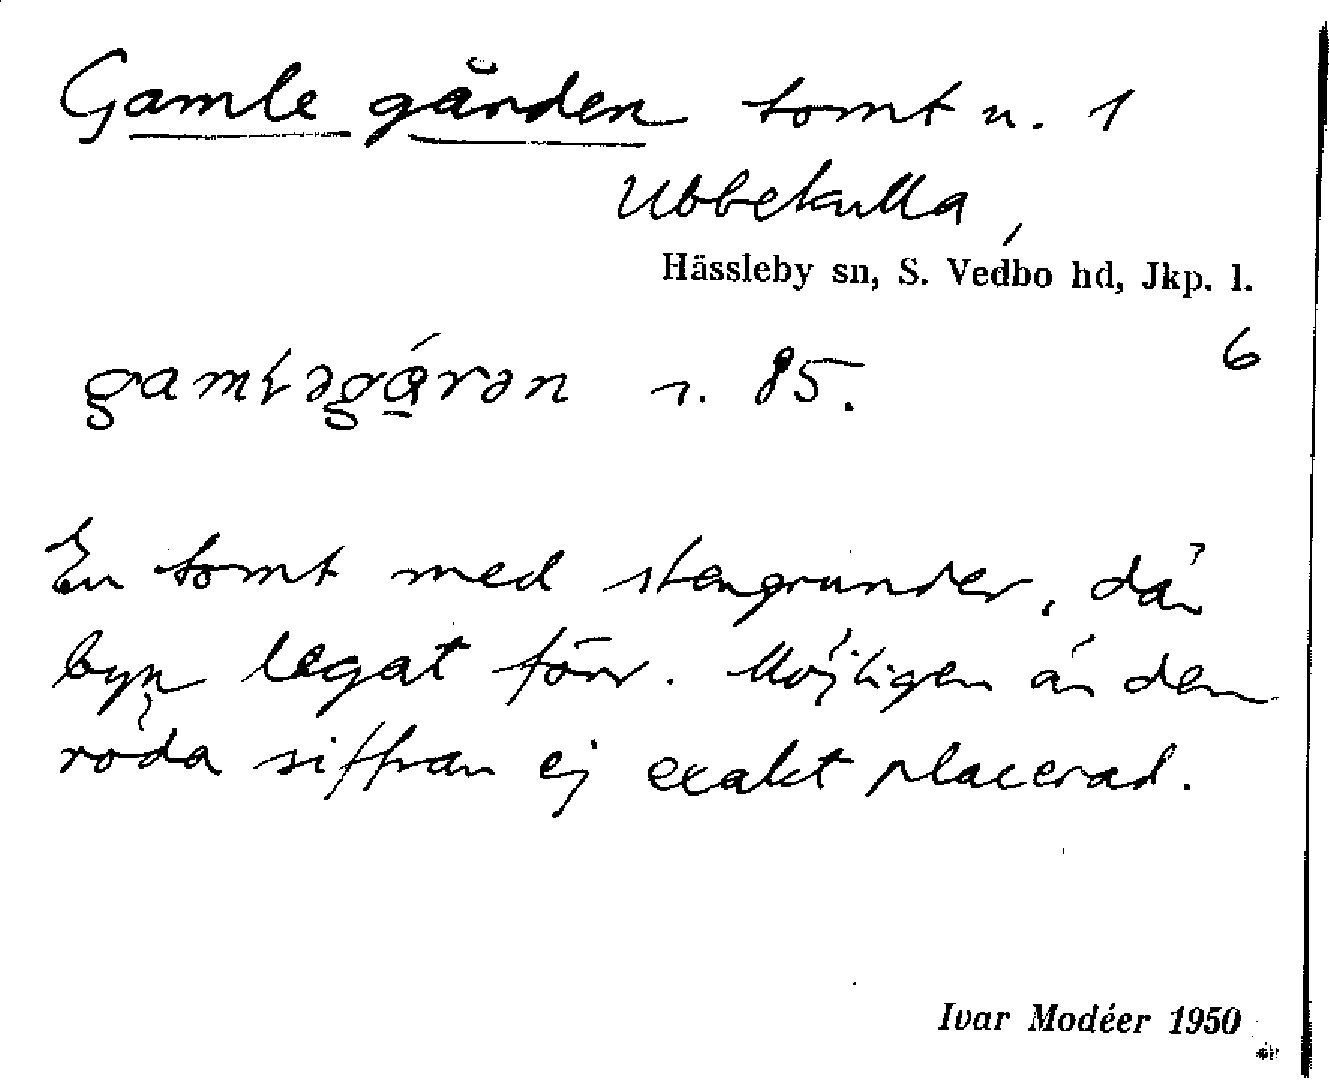 Gamle gården tomt n. 1
Ubbekulla,
Hässleby sn, S. Vedbo hd, Jkp. l.
6
r. 85.
En tomt med stengrunder, där
byn legat förr. Möjligen är den
röda siffran ej exakt placerad.
Ivar Modéer 1950